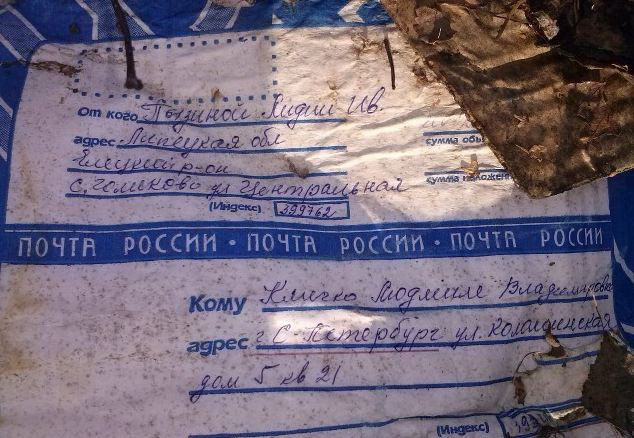 От кого Поздиной Лидии Ив.
адрес Липецкая обл
Елецкий р-он
с. Голиково ул Центральная
(Индекс) 399762
сумма объ
сумма наложен
ПОЧТА РОССИИ • ПОЧТА РОССИИ • ПОЧТА РОССИИ
Кому Кличко Людмиле Владимировн
адрес г. С-Петербург ул.
дом 5 кв 21
(Индекс)